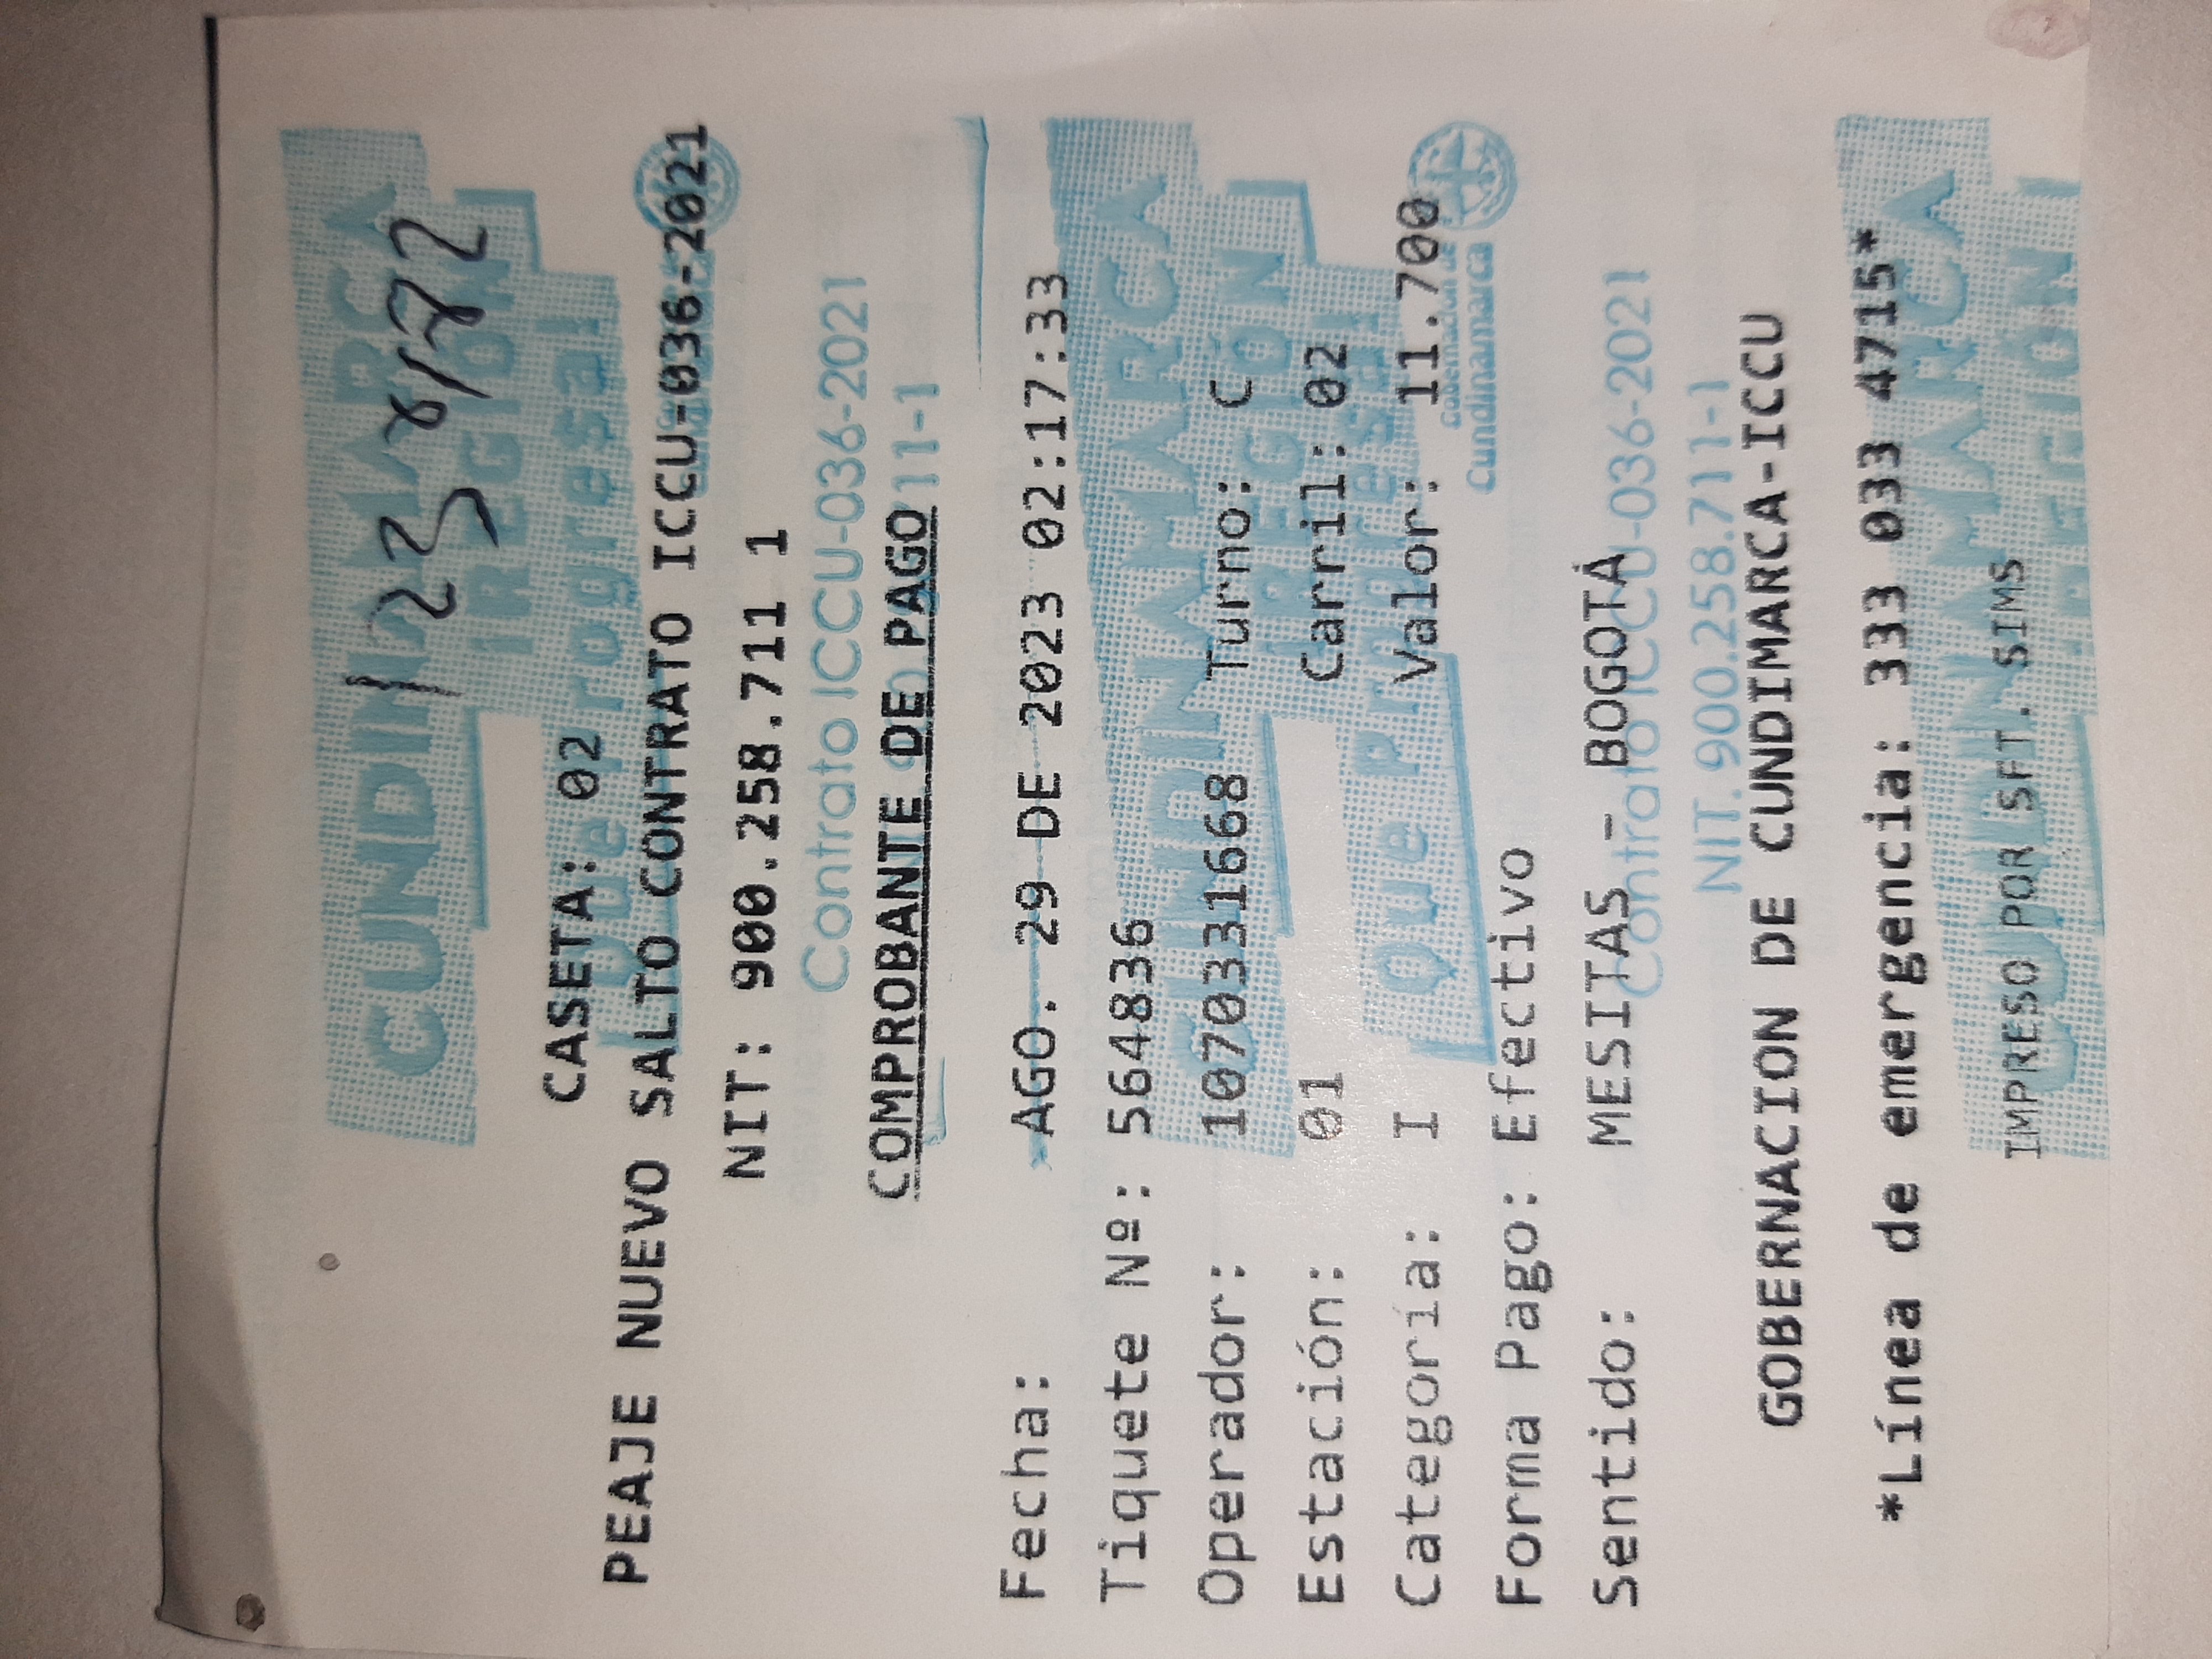 CUNDINAMARCA
¡REGIÓN
Que Progresa!
CASETA: 02
PEAJE NUEVO SALTO CONTRATO ICCU-036-2021
NIT: 900.258.711 1
Contrato ICCU-036-2021
COMPROBANTE DE PAGO
Fecha: AGO. 29 DE 2023 02:17:33
Tiquete Nº: 564836
CUNDINAMARCA
Operador: 1070331668 Turno: C
¡REGIÓN
Estación: 01 Carril: 02
Que Progresa!
Categoría: I Valor: 11.700
Gobernación de
Cundinamarca
Forma Pago: Efectivo
Sentido: MESITAS - BOGOTÁ
Contrato ICCU-036-2021
NIT. 900.258.711-1
GOBERNACION DE CUNDIMARCA-ICCU
*Línea de emergencia: 333 033 4715*
CUNDINAMARCA
IMPRESO POR SFT. SIMS